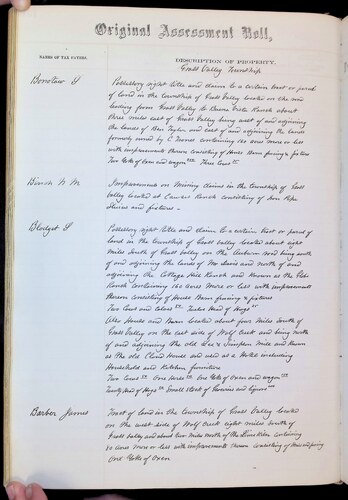 Original Assessment Roll,
NAMES OF TAX PAYERS.
DESCRIPTION OF PROPERTY.
Grass Valley Township
Possessory right title and claim to a certain tract or parcel
of land in the township of Grass Valley located on the road
leading from Grass Valley to Buena Vista Ranch about
three miles east of Grass Valley being west of and adjoining
the lands of Ben Taylor and east of and adjoining the lands
formerly owned by C containing 160 acres more or less
with improvements thereon consisting of House Barn fencing & fixtures
Two Yoke of Oxen and wagon Three Cows
Improvements on Mining claims in the township of Grass
Valley located at Ranch consisting of Iron Pipe
Flume and fixtures
Blodget S
Possessory right title and claim to a certain tract or parcel of
land in the township of Grass Valley located about eight
miles South of Grass Valley on the Auburn road being north
of and adjoining the lands of and north of and
adjoining the Cottage Hill Ranch and known as the
Ranch containing 160 acres more or less with improvements
thereon consisting of House Barn fencing & fixtures
Two Cows and calves Twelve Head of Hogs
Also House and Barn located about four miles South of
Grass Valley on the east side of Wolf Creek and being north
of and adjoining the old Lee & Simpson Mill and known
as the old House and used as a Hotel including
Household and Kitchen furniture
Two Cows One horse One Yoke of Oxen and wagon
Twenty Head of Hogs Small stock of and liquors
Barber James
Tract of land in the township of Grass Valley located
on the west side of Wolf Creek eight miles south of
Grass Valley and about two miles north of the containing
acres more or less with improvements thereon consisting of
One Yoke of Oxen